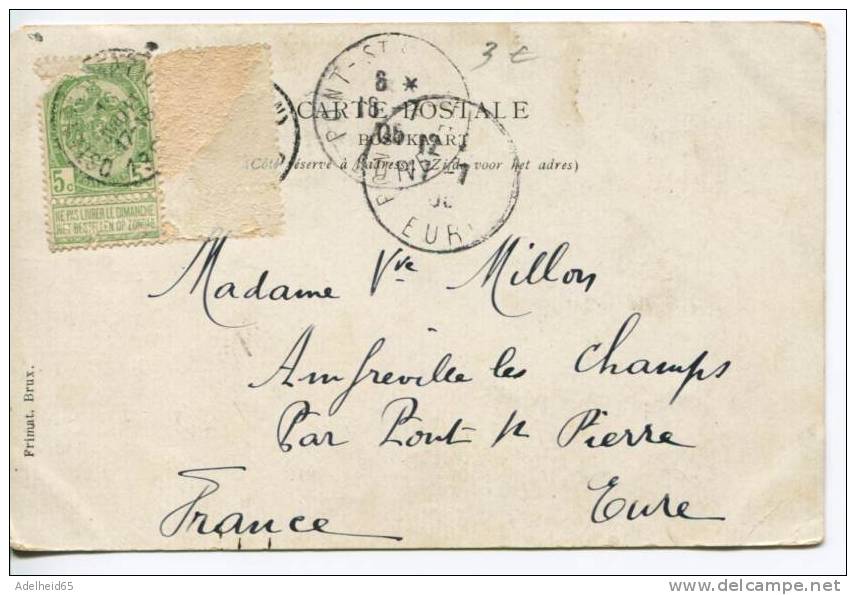 3 €
CARTE POSTALE
POSTKAART
(Côté réservé à l'adresse. — Zijde voor het adres)
PONT-ST
6 *
18 -7
05
EUR
5c
NE PAS LIVRER LE DIMANCHE
NIET BESTELLEN OP ZONDAG
Madame Vve Millon
Amfreville les Champs
Par Pont St Pierre
Eure
France
Frimat, Brux.
Adelheid65
delcampe.net